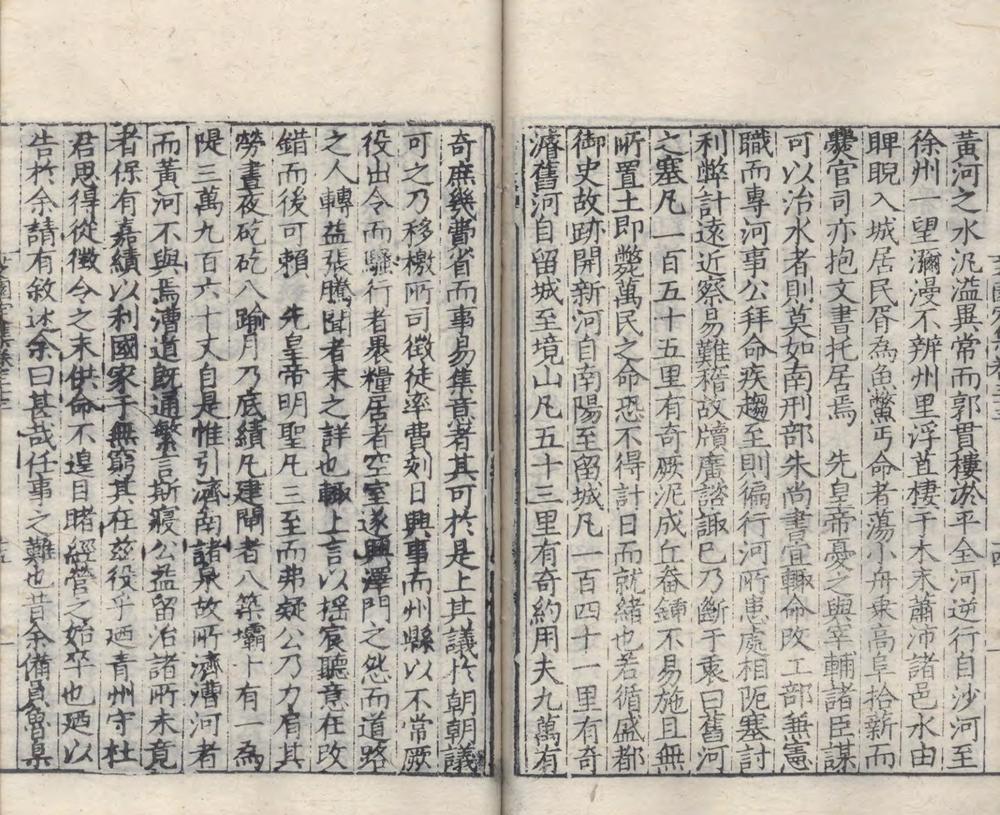 黃河之水汜溢異常而郭貫樓淤平全河逆行自沙河至
徐州一望瀰漫不辨州里浮苴棲于木末蕭沛諸邑水由
睥睨入城居民胥為魚鱉丐命者蕩小舟乘高阜拾薪而
爨官司亦抱文書托居焉　先皇帝憂之與宰輔諸臣謀
可以治水者則莫如南刑部朱尚書宜輙命改工部兼憲
職而專河事公拜命疾趨至則徧行河所患處相阨塞討
利弊計遠近察易難稽故牘廣諮諏已乃斷于衷曰舊河
之塞凡一百五十五里有奇厥泥成丘畚鍤不易施且無
所置土即斃萬民之命恐不得計日而就緒也若循盛都
御史故跡開新河自南陽至留城凡一百四十一里有奇
濬舊河自留城至境山凡五十三里有奇約用夫九萬有
奇庶幾費省而事易集意者其可於是上其議於朝朝議
可之乃移檄所司徵徒率費刻日興事而州縣以不常厥
役出令而騷行者裹糧居者空室遂興澤門之怨而道路
之人轉益張騰聞者未之詳也輙上言以搖宸聽意在改
錯而後可賴　先皇帝明聖凡三至而弗疑公乃力肩其
勞晝夜矻矻八踰月乃底績凡建閘者八築壩十有一為
隄三萬九百六十丈自是惟引濟南諸泉故所濟漕河者
而黃河不與焉漕道既通繁言斯寢公益留治諸所未竟
者保有嘉績以利國家于無窮其在茲役乎廼青州守杜
君思得從徵令之末供命不遑日睹經營之始卒也廼以
告於余請有敘述余曰甚哉任事之難也昔余備員魯臬